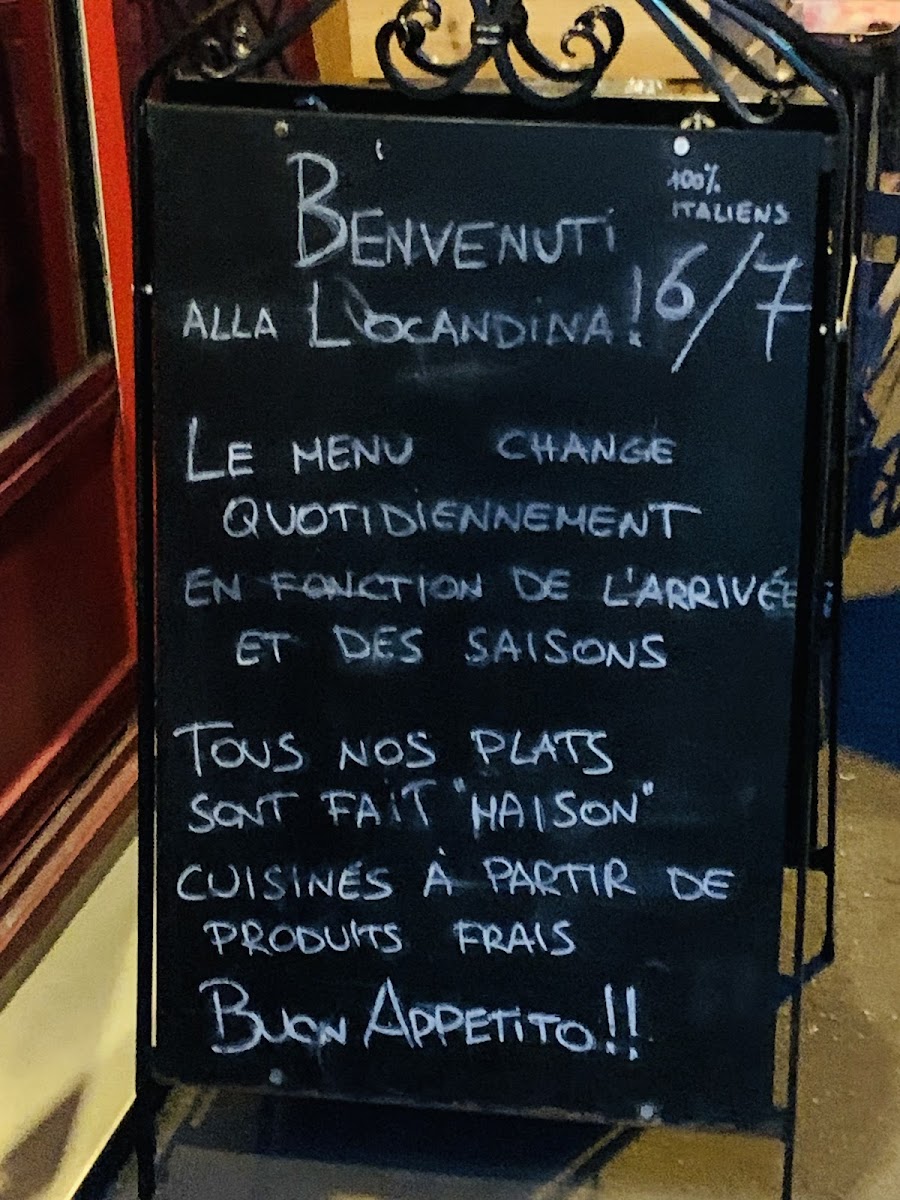 BENVENUTi
100%
ITALIENS
ALLA LOCANDiNA!
6/7
LE MENU CHANGE
QUOTIDiENNEMENT
EN FONCTION DE L'ARRIVÉE
ET DES SAISONS
TOUS NOS PLATS
SONT FAiT "MAISON"
CUISINÉS À PARTIR DE
PRODUITS FRAIS
BUON APPETITO!!